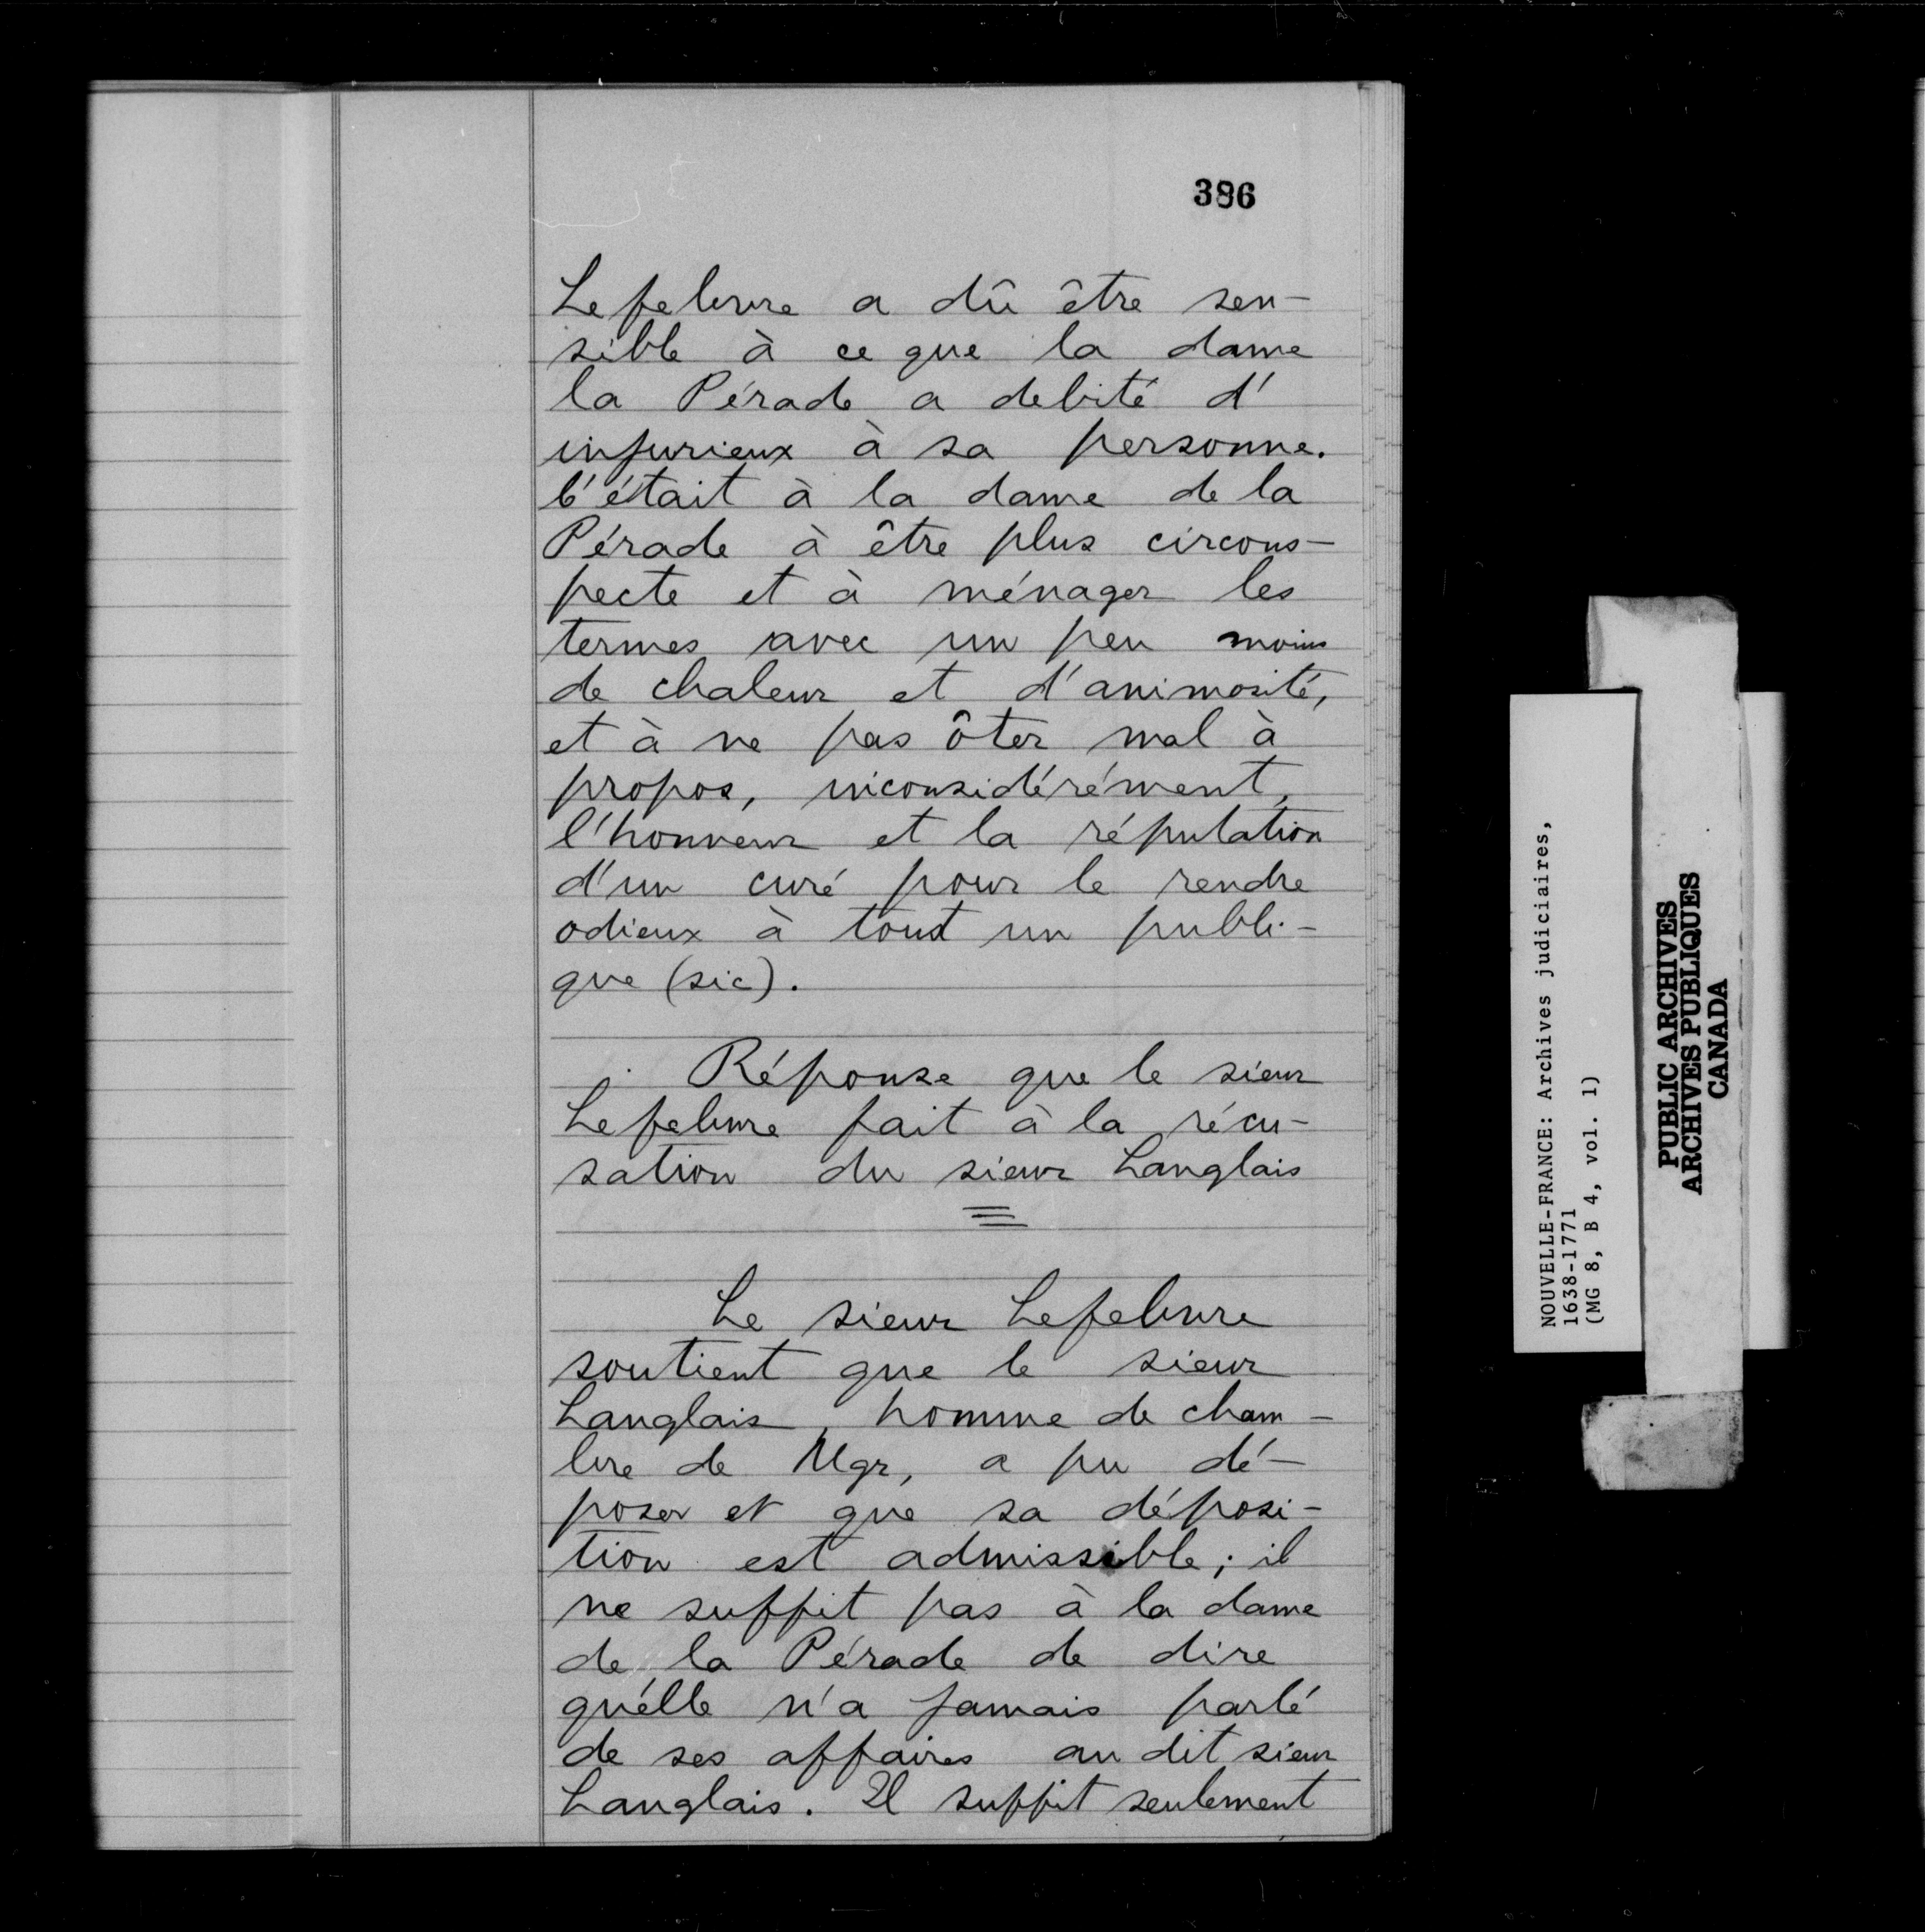 386
Lefebvre a dû être sen-
sible à ce que la dame
la Pérade a debité d'
injurieux à sa personne.
C'était à la dame de la
Pérade à être plus circons-
pecte et à ménager les
termes avec un peu moins
de chaleur et d'animosité,
et à ne pas ôter mal à
propos, inconsidérément,
l'honneur et la réputation
d'un curé pour le rendre
odieux à tout un publi-
que (sic).
Réponse que le sieur
Lefebvre fait à la récu-
sation du sieur Langlais
Le sieur Lefebvre
soutient que le sieur
Langlais, homme de cham-
bre de Mgr, a pu dé-
poser et que sa déposi-
tion est admissible; il
ne suffit pas à la dame
de la Pérade de dire
qu'elle n'a jamais parlé
de ses affaires au dit sieur
Langlais. Il suffit seulement
NOUVELLE-FRANCE: Archives judiciaires,
1638-1771
(MG 8, B 4, vol. 1)
PUBLIC ARCHIVES
ARCHIVES PUBLIQUES
CANADA